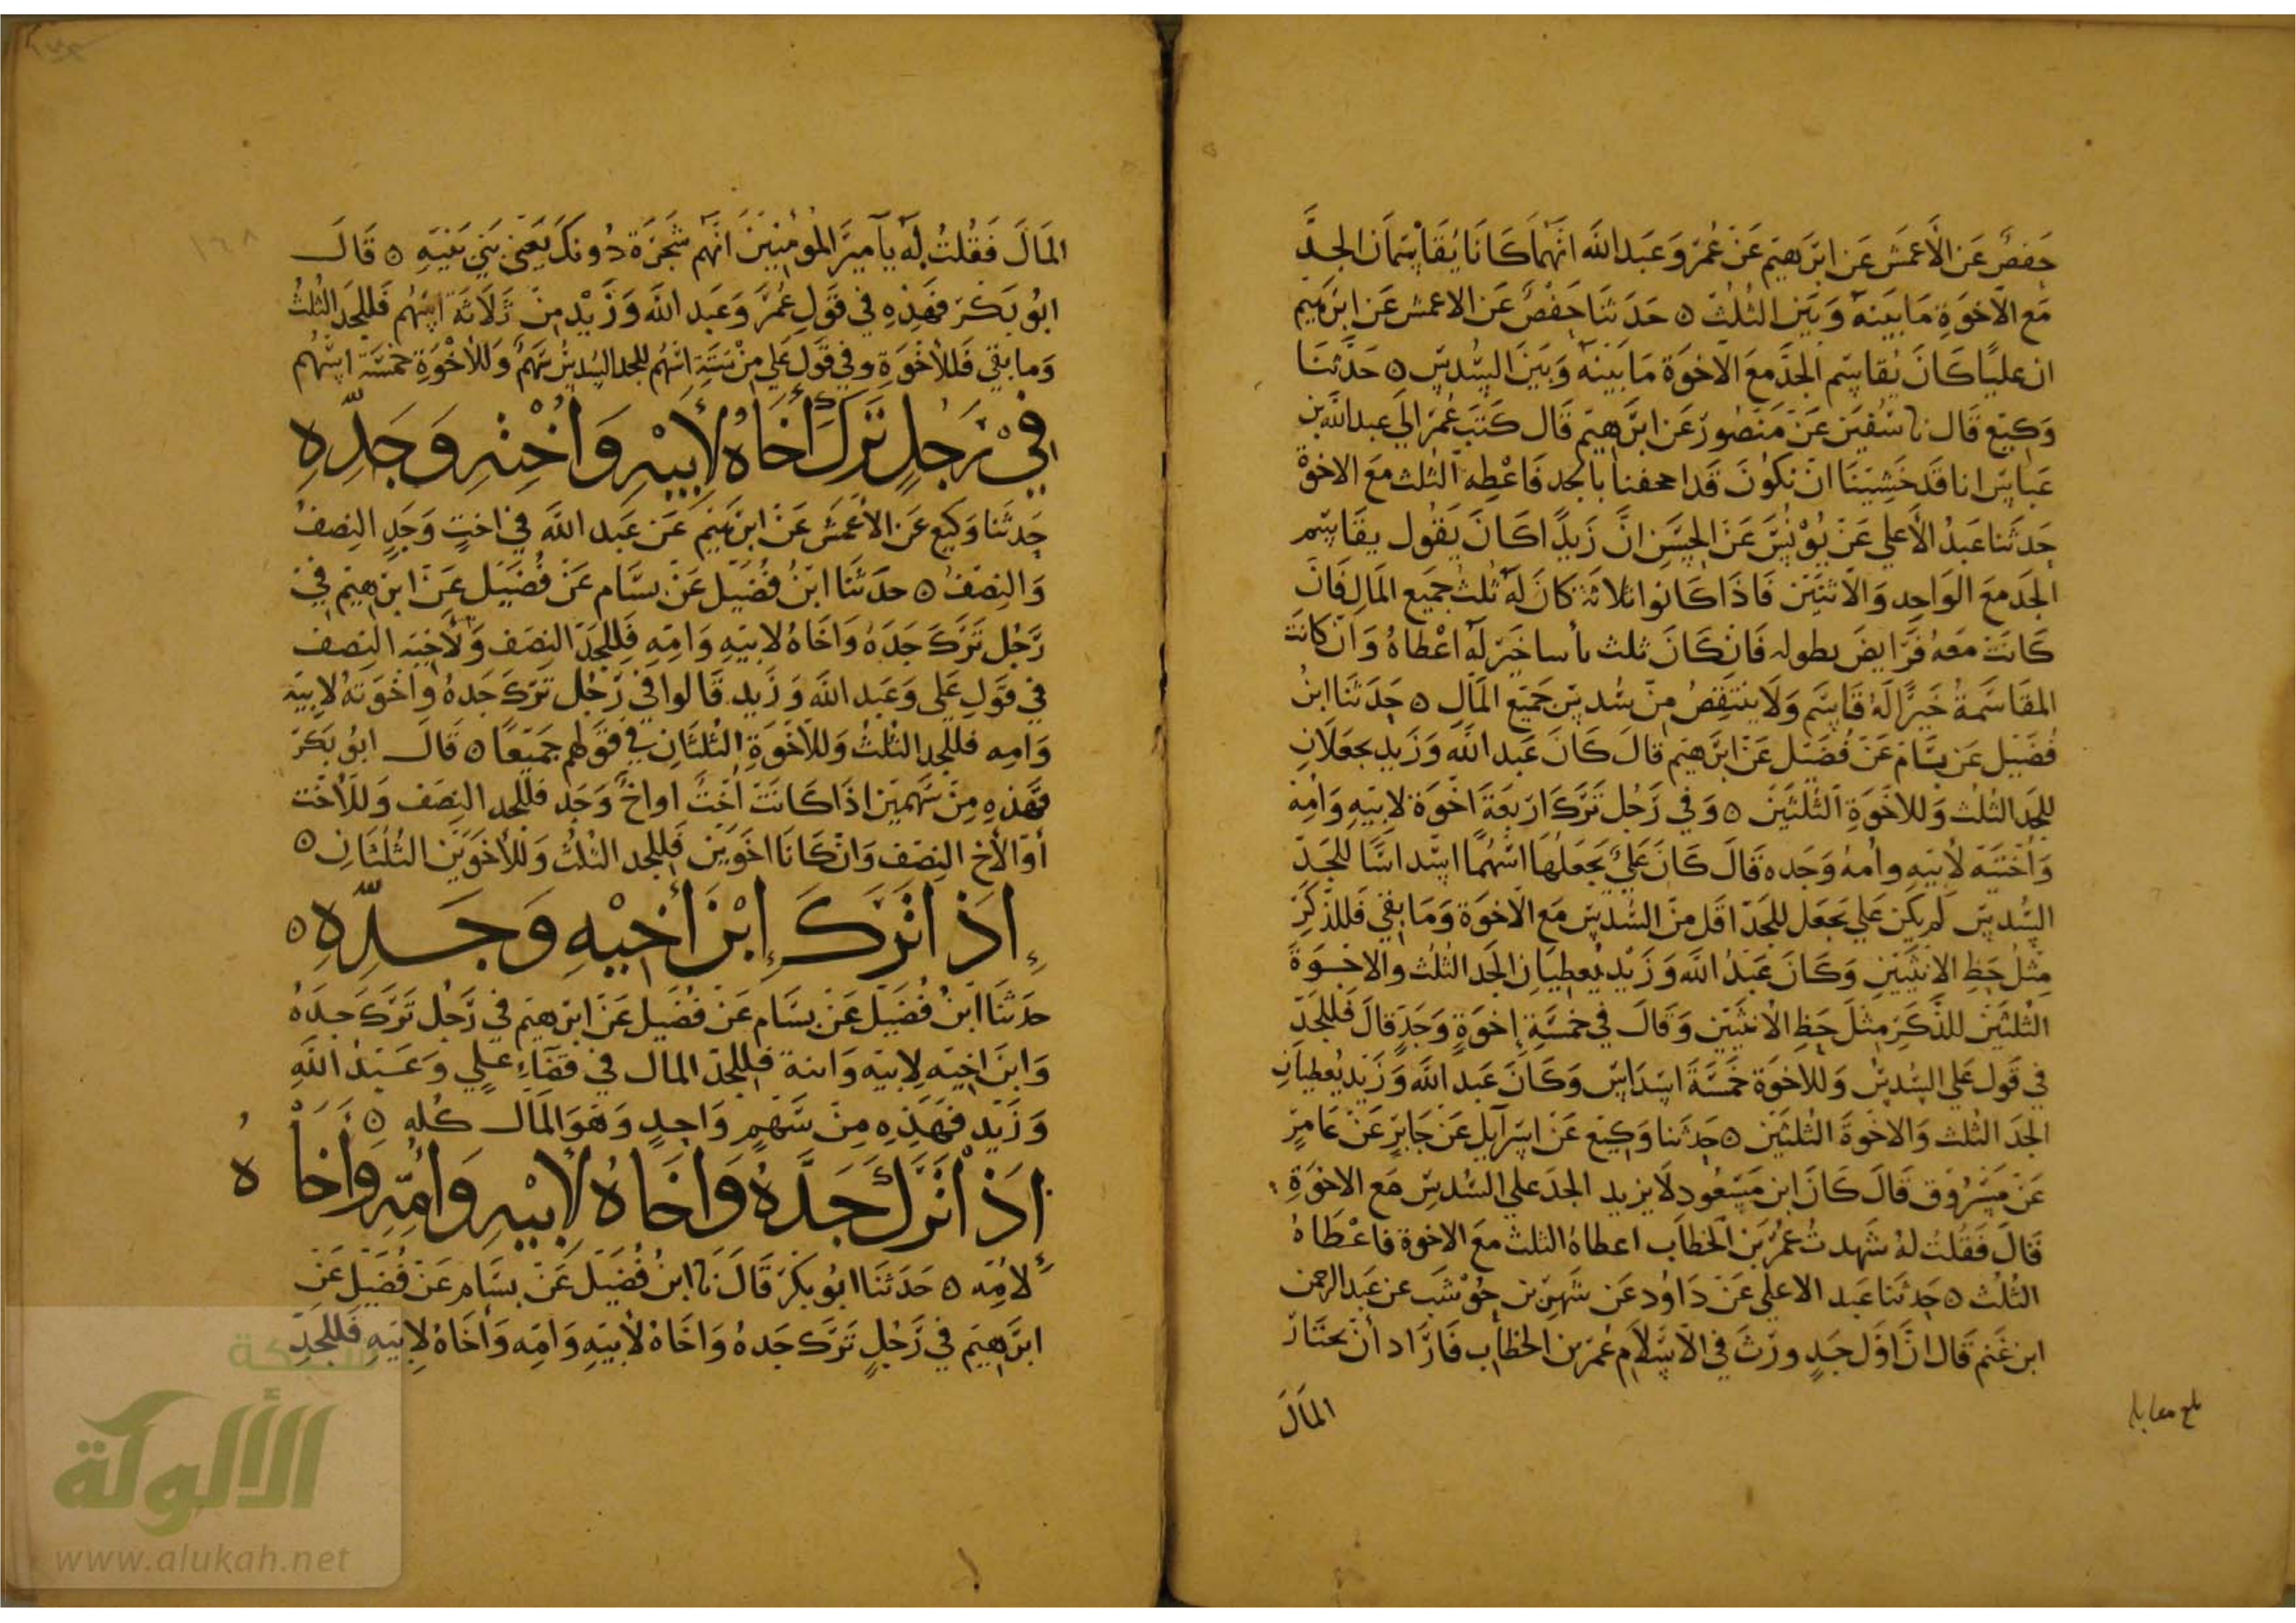 حفص عن الأعمش عن ابرهيم عن عمر وعبد الله انهما كانا يقاسمان الجد
مع الاخوة ما بينه وبين الثلث ه حدثنا حفص عن الاعمش عن ابرهيم
ان عليا كان يقاسم الجد مع الاخوة ما بينه وبين السدس ه حدثنا
وكيع قال نا سفين عن منصور عن ابرهيم قال كتب عمر الي عبد الله بن
عباس انا قد خشينا ان نكون قد اجحفنا بالجد فاعطه الثلث مع الاخوة
حدثنا عبد الأعلي عن يونس عن الحسن ان زيدا كان يقول يقاسم
الجد مع الواحد والاثنين فاذا كانوا ثلاثة كان له ثلث جميع المال فان
كانت معه فرايض فان كان ثلث خير له اعطاه وان كانت
المقاسمة خيرا له قاسم ولا ينتقص من سدس جميع المال ه حدثنا ابن
فضيل عن بسام عن فضيل عن ابرهيم قال كان عبد الله وزيد يجعلان
للجد الثلث وللاخوة الثلثين ه وفي رجل ترك اربعة اخوة لابيه وامه
واختيه لأبيه وامه وجده قال كان علي يجعلها اسهما اسداسا للجد
السدس لم يكن علي يجعل للجد اقل من السدس مع الاخوة وما بقي فللذكر
مثل حظ الانثيين وكان عبد الله وزيد يعطيان الجد الثلث والاخوة
الثلثين للذكر مثل حظ الانثيين وقال في خمسة إخوة وجد قال فللجد
في قول علي السدس وللاخوة خمسة اسداس وكان عبد الله وزيد يعطيان
الجد الثلث والاخوة الثلثين ه حدثنا وكيع عن اسرآيل عن جابر عن عامر
عن مسروق قال كان ابن مسعود لا يزيد الجد علي السدس مع الاخوة
قال فقلت له شهدت عمر بن الخطاب اعطاه الثلث مع الاخوة فاعطاه
الثلث ه حدثنا عبد الاعلي عن داود عن شهر بن حوشب عن عبد الرحمن
ابن غنم قال ان اول جد ورث في الاسلام عمر بن الخطاب فاراد أن يحتاز
المال
بلغ مقابلة
المال فقلت له يا أمير المومنين انهم شجرة دونك يعني بني بنيه ه قال
ابو بكر فهذه في قول عمر وعبد الله وزيد من ثلاثة اسهم فللجد الثلث
وما بقي فللأخوة وفي قول علي من ستة اسهم للجد السدس سهم وللأخوة خمسة اسهم
في رجل ترك أخاه لأبيه وأخته وجده
حدثنا وكيع عن الأعمش عن ابرهيم عن عبد الله في اخت وجد النصف
والنصف ه حدثنا ابن فضيل عن بسام عن فضيل عن ابرهيم في
رجل ترك جده واخاه لابيه وامه فللجد النصف ولأخيه النصف
في قول علي وعبد الله وزيد قالوا في رجل ترك جده واخوته لابيه
وامه فللجد الثلث وللاخوة الثلثان في قولهم جميعا ه قال ابو بكر
فهذه من سهمين اذا كانت اخت اواخ وجد فللجد النصف وللأخت
أو الأخ النصف وان كانا اخوين فللجد الثلث وللأخوين الثلثان ه
إذا ترك إبن أخيه وجده ه
حدثنا ابن فضيل عن بسام عن فضيل عن ابرهيم في رجل ترك جده
وابن اخيه لابيه وامه فللجد المال في قضآء علي وعبد الله
وزيد فهذه من سهم واحد وهو المال كله ه
إذا ترك جده وأخاه لأبيه وأمه وأخاه
لأمه ه حدثنا ابو بكر قال نا ابن فضيل عن بسام عن فضيل عن
ابرهيم في رجل ترك جده واخاه لأبيه وامه وأخاه لابيه فللجد
١٦٨
شبكة
الألوكة
www.alukah.net